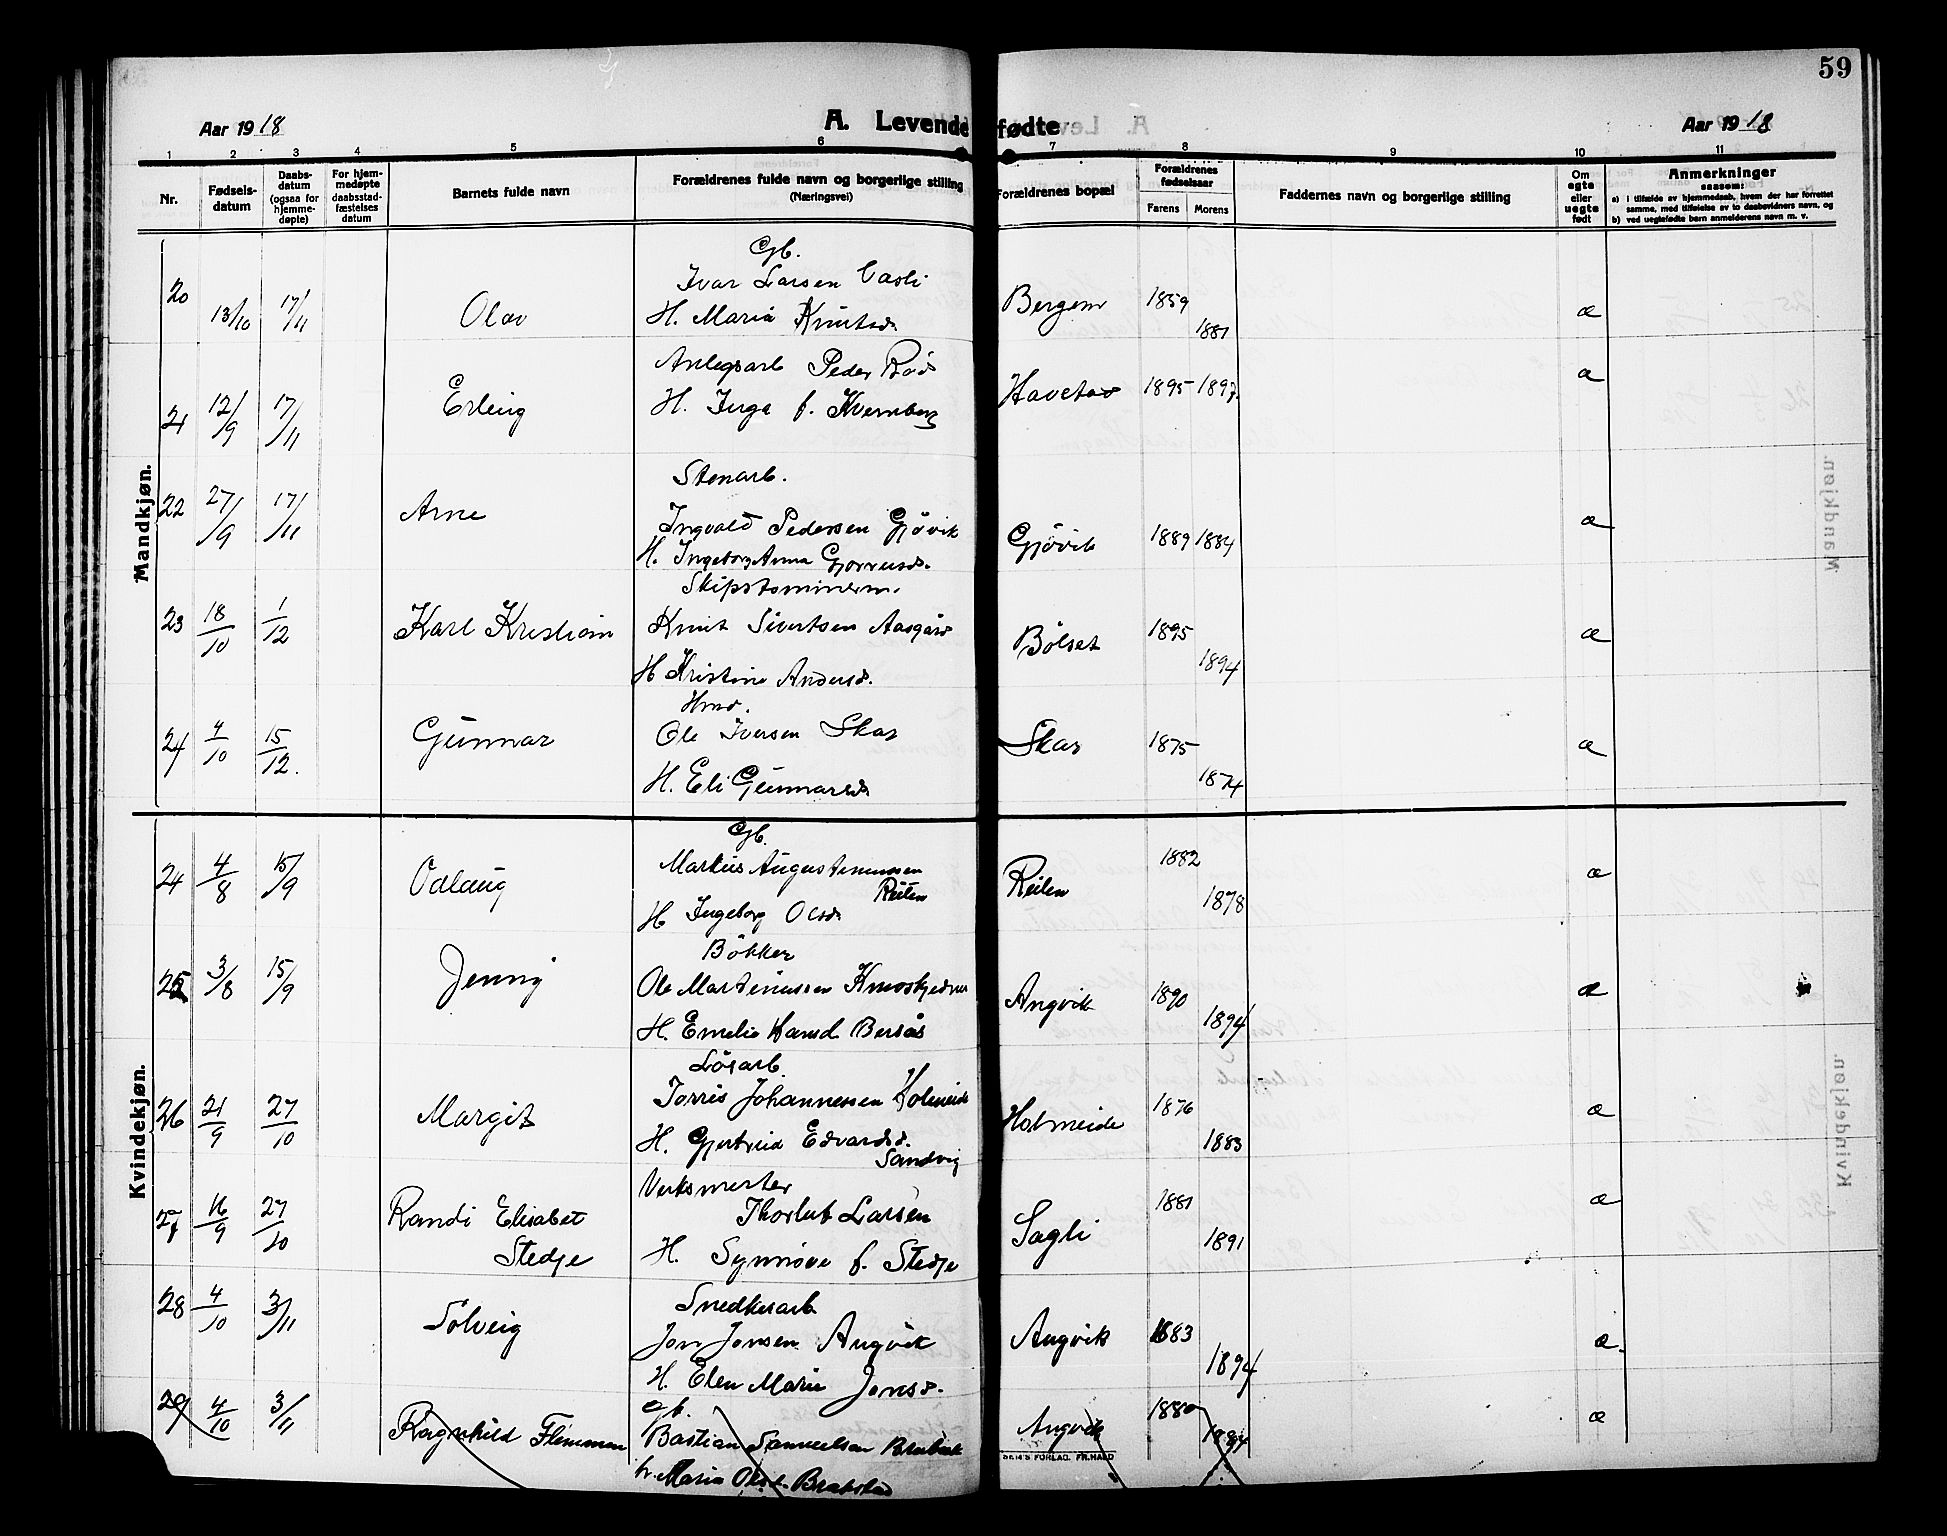 59
Aar 1918
A. Levende fødte
Aar 1918
1 2 3 4 5 6 7 8 9 10 11
Nr.
Fødsels-
datum
Daabs-
datum
(ogsaa for
hjemme-
døpte)
For hjem-
medøpte
daabsstad-
fæstelses
datum
Barnets fulde navn
Forældrenes fulde navn og borgerlige stilling
(Næringsvei)
Forældrenes bopæl
Forældrenes
fødselsaar
Farens Morens
Faddernes navn og borgerlige stilling
Om
egte
eller
uegte
født
Anmerkninger
saasom:
a) i tilfælde av hjemmedaab, hvem der har forrettet
samme, med tilføielse av to daabsvidners navn, og
b) ved uegtefødte børn anmelderens navn m. v.
Mandkjøn.
Gb.
Ivar Larsen Vasli
20 13/10 17/11 Olav H. Maria Knutsd. Bergem 1859 1881 æ
Anlegsarb Peder Rød
21 12/9 17/11 Erling H. Inga f. Kvernberg Havstad 1895 1897 æ
Stenarb.
22 27/9 17/11 Arne Ingvald Pedersen Gjøvik Gjøvik 1889 1884 æ
H. Ingeborg Anna
Skipstømmerm.
23 18/10 1/12 Karl Kristian Knut Sivertsen Aasgård Bølset 1895 1894 æ
H Kristine Andersd.
24 4/10 15/12. Gunnar Ole Iversen Skar Skar 1875 1874 æ
H. Eli Gunnarsd
Kvindekjøn.
Gb.
Markus Augustinussen
Reiten
24 4/8 15/9 Odlaug H Ingeborg Olsd. Reiten 1882 1878 æ
Bøkker
25 3/8 15/9 Jenny Ole Martinussen Angvik 1890 1894 æ
H. Emelie Hansd Bersås
Løsarb.
26 21/9 27/10 Margit Torris Johannessen Holmeide Holmeide 1876 1883 æ
H. Gjertrud Edvardsd.
Sandvig
Verksmester
27 16/9 27/10 Randi Elisabet Thorleif Larsen Sagli 1881 1891 æ
Stedje H. Synnøve f. Stedje
Snedkerarb
28 4/10 3/11 Solveig Jon Jonsen Angvik Angvik 1883 1894 æ.
H. Elen Marie Jonsd.
29 4/10 3/11 Ragnhild Flemmen Bastian Samuelsen Angvik 1880 1884 æ
h. Maria Olsd. Brakstad
FORLAG. FR. HALD